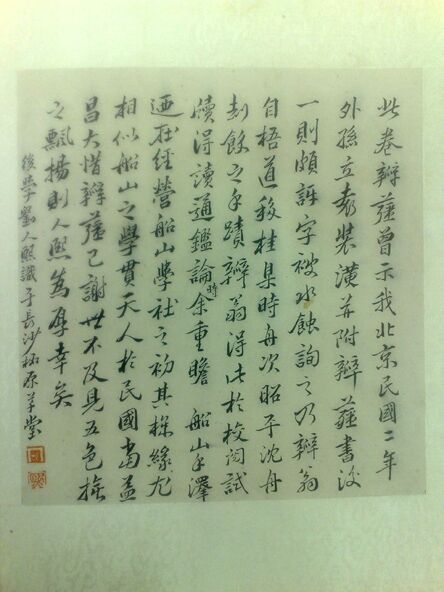 此卷瓣薑曾示我北京民國二年
外孫立袁裝潢并附瓣薑書後
一則頗訝字被水蝕詢之乃瓣翁
自梧道移桂臬時舟次昭平沈舟
刦餘之手蹟瓣翁得此於校閱試
牘得讀通鑑論時余重瞻船山手澤
迺在經營船山學社之初其機緣尤
相似船山之學貫天人於民國當益
昌大惜瓣薑已謝世不及見五色旗
之飄揚則人熙為厚幸矣
後學劉人熙識于長沙原草堂